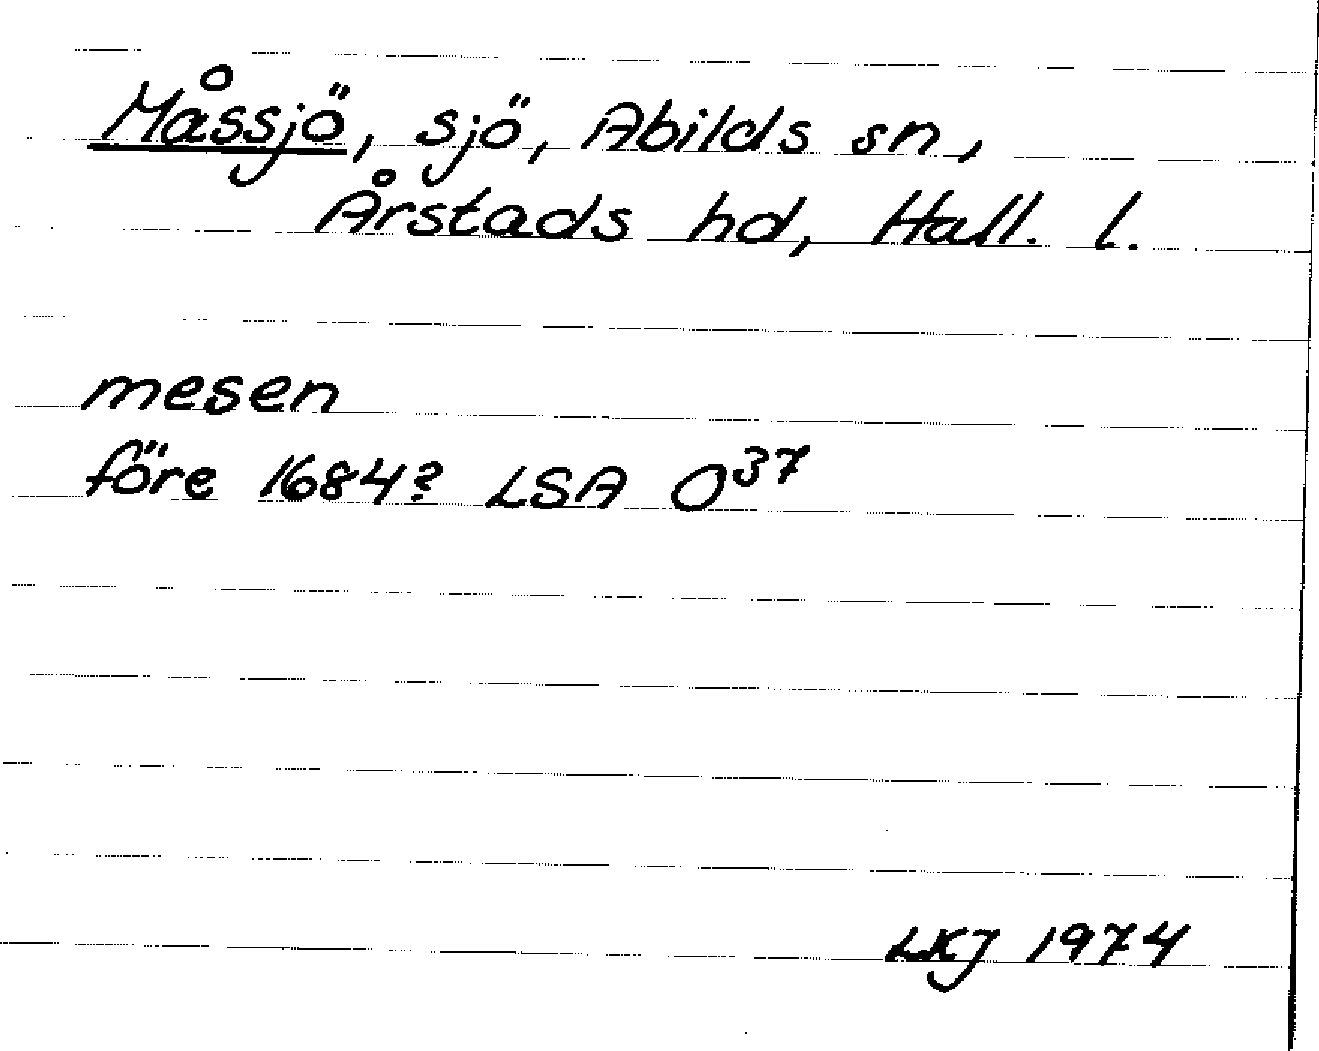 Måssjö, sjö, Abilds sn,
Årstads hd, Hall. l.
mesen
före 1684? LSA O37
LKJ 1974